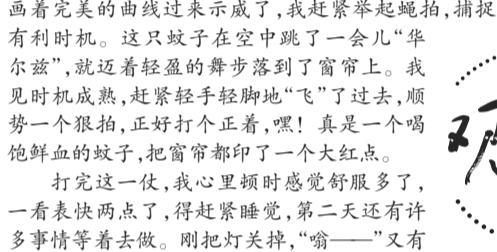 画着完美的曲线过来示威了,我赶紧举起蝇拍,捕捉
有利时机。这只蚊子在空中跳了一会儿“华
尔兹”,就迈着轻盈的舞步落到了窗帘上。我
见时机成熟,赶紧轻手轻脚地“飞”了过去,顺
势一个狠拍,正好打个正着,嘿!真是一个喝
饱鲜血的蚊子,把窗帘都印了一个大红点。
打完这一仗,我心里顿时感觉舒服多了,
一看表快两点了,得赶紧睡觉,第二天还有许
多事情等着去做。刚把灯关掉,“嗡——”又有